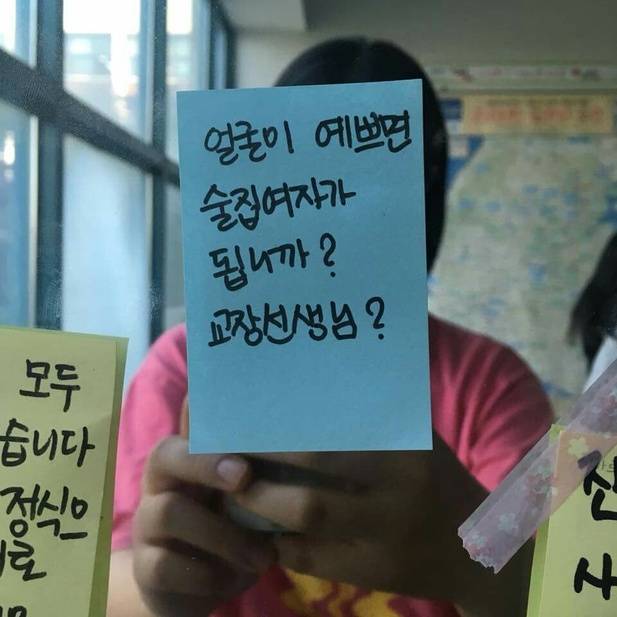 얼굴이 예쁘면
술집여자가
됩니까?
교장선생님?
모두
습니다
정식으
로